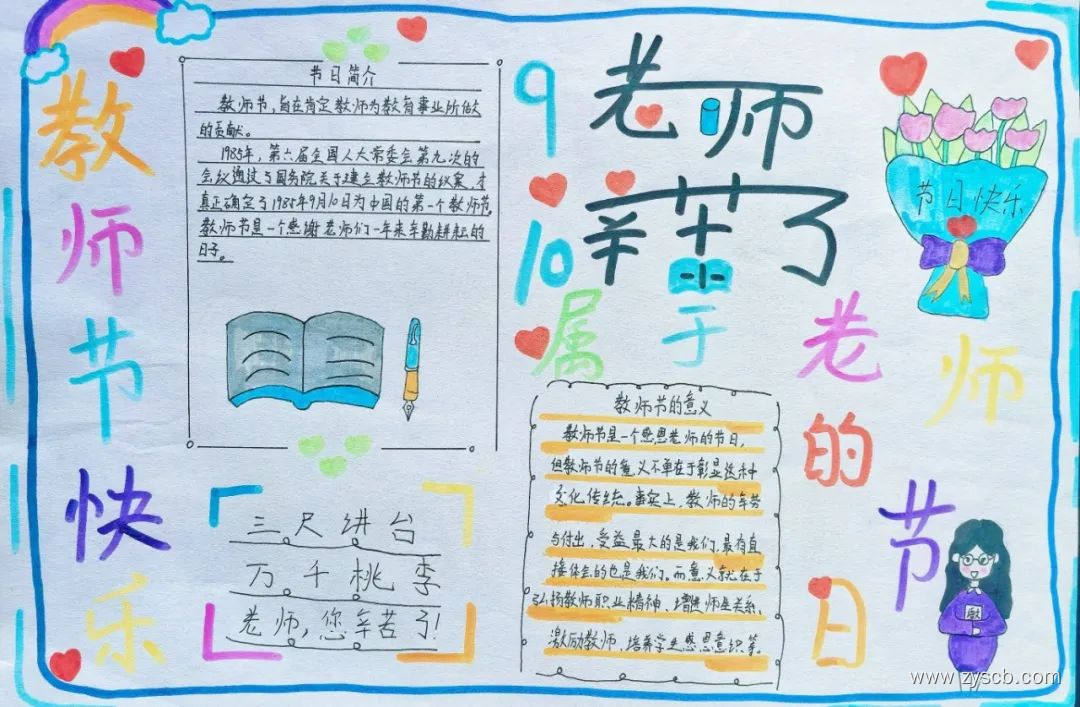 教师节快乐
节日简介
教师节，旨在肯定教师为教育事业所做
的贡献。
1985年，第六届全国人大常委会第九次的
会议通过了国务院关于建立教师节的议案，才
真正确定了1985年9月10日为中国的第一个教师节。
教师节是一个感谢老师们一年来辛勤耕耘的
日子。
三尺讲台
万千桃李
老师，您辛苦了！
9
10
老师
辛苦了
节日快乐
属于老师的节日
教师节的意义
教师节是一个感恩老师的节日，
但教师节的意义不单在于彰显这种
文化传统。事实上，教师的辛劳
与付出，受益最大的是我们，最有直
接体会的也是我们。而意义就在于
弘扬教师职业精神、增进师生关系、
激励教师、培养学生感恩意识等。
教
www.zyscb.com